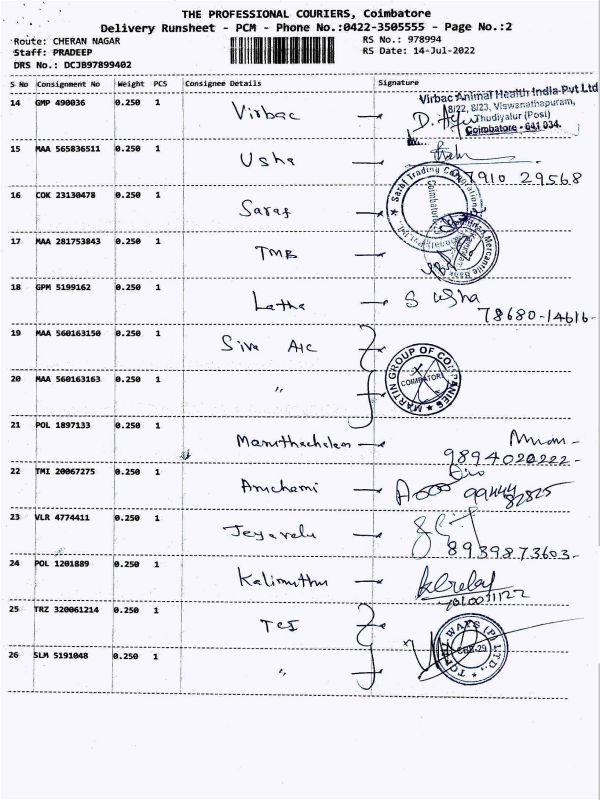 THE PROFESSIONAL COURIERS, Coimbatore
Delivery Runsheet - PCM - Phone No.:0422-3505555 - Page No.:2
Route: CHERAN NAGAR
Staff: PRADEEP
DRS No.: DCJB97899402
RS No.: 978994
RS Date: 14-Jul-2022
S No Consignment No Weight PCS Consignee Details Signature
14 GMP 490036 0.250 1 Virbac
Virbac Animal Health India Pvt Ltd
8/22, 8/23, Viswanathapuram,
Thudiyalur (Post)
Coimbatore - 641 034.
15 MAA 565836511 0.250 1 Usha
7910 29568
16 COK 23130478 0.250 1 Saraf
Saraf Trading Corporation
17 MAA 281753843 0.250 1 TMB
Mercantile Bank
18 GPM 5199162 0.250 1 Latha S usha
78680-14616-
19 MAA 560163150 0.250 1 Siva A/C
20 MAA 560163163 0.250 1 "
MARTIN GROUP OF COMPANIES
COIMBATORE
21 POL 1897133 0.250 1 Maruthachalam
9894020222-
22 TMI 20067275 0.250 1 Amchami
99444
82825
23 VLR 4774411 0.250 1 Jeyavelu
8939873603-
24 POL 1201889 0.250 1 Kalimuthu
25 TRZ 320061214 0.250 1 TCI
26 SLM 5191048 0.250 1 "
CBE-29